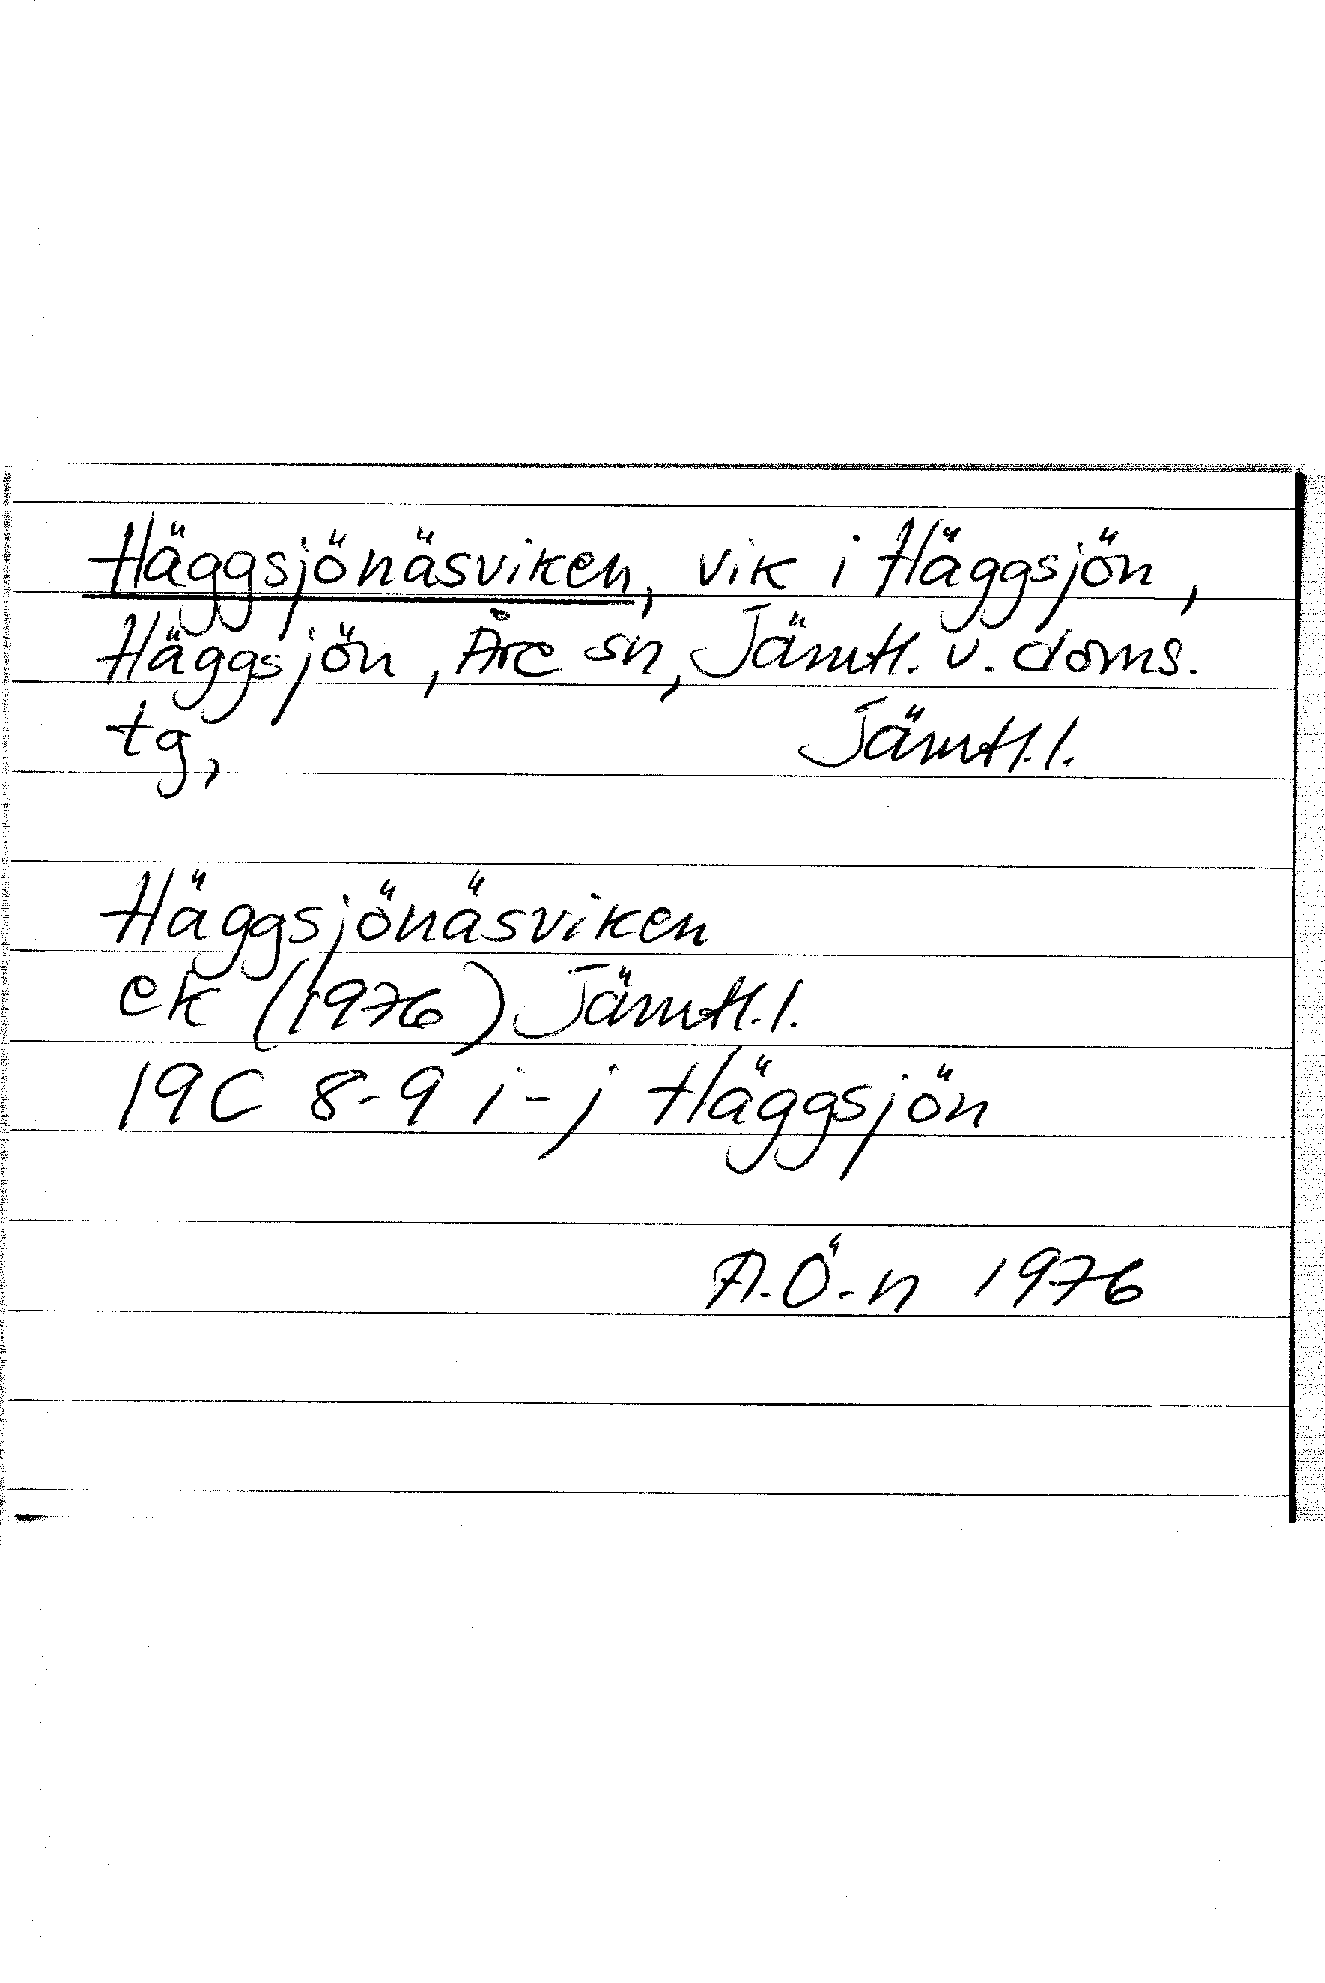 Häggsjönäsviken, vik i Häggsjön,
Häggsjön, Åre sn, Jämtl. v. doms.
tg, Jämtl. l.
Häggsjönäsviken
ek (1976) Jämtl. l.
19C 8-9 i-j Häggsjön
A.Ö-n 1976